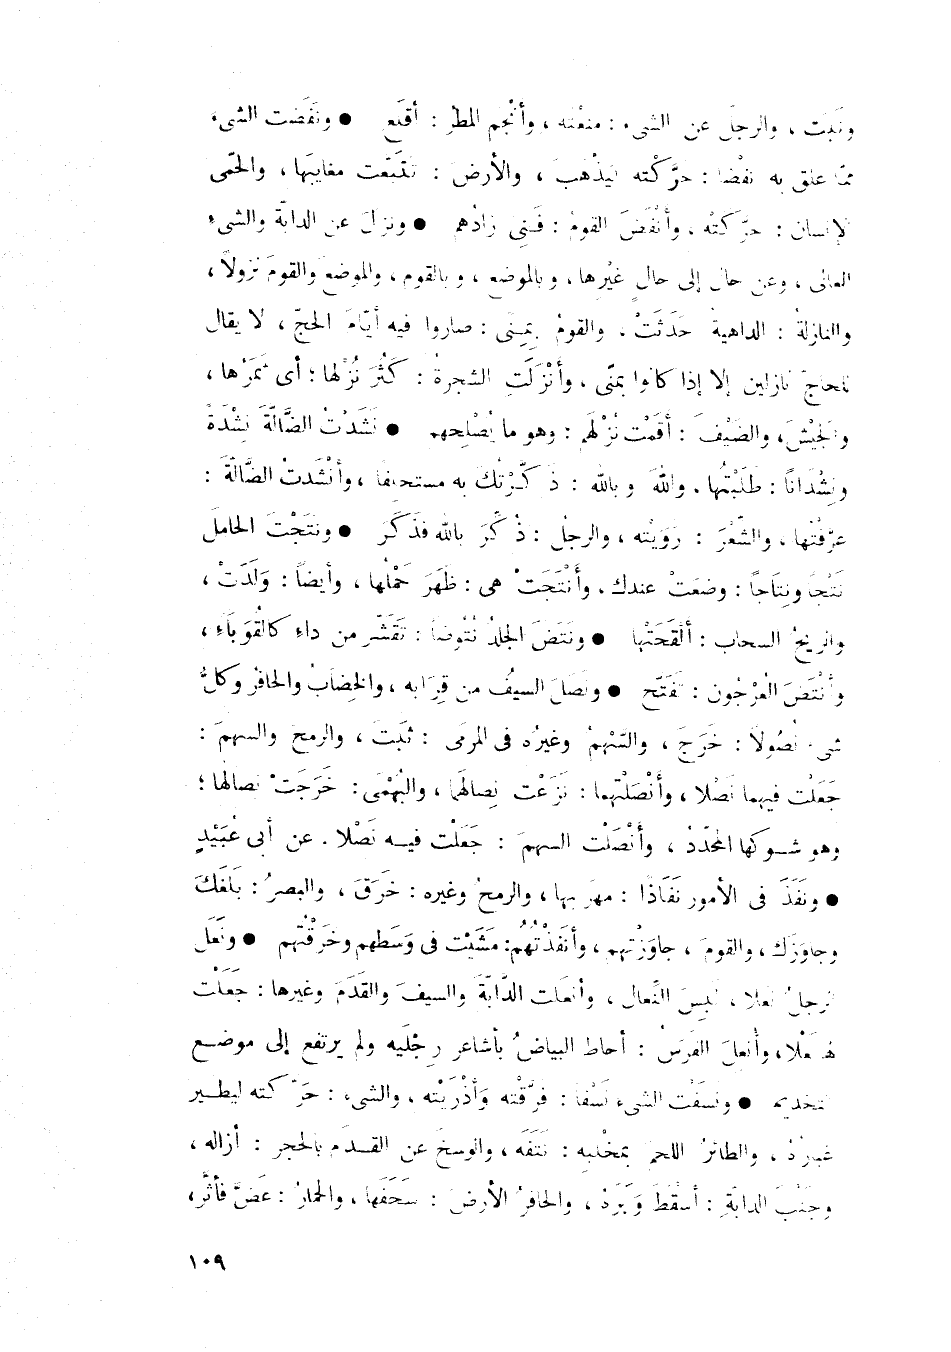 ونَبَت ، والرجلَ عن الشىء : منعْته ، وأنْجَم المطرُ : أقلَع ● ونَفَضت الشىء
ممّا علق به نفْضًا : حرَّكْته ليذْهبَ ، والأرضَ : تتبّعت مغايبَها ، والحُمّى
الإنسان : حرّكتْه ، وأَنْفَضَ القومُ : فَنِىَ زادُهم ● ونزلَ عن الدابّة والشىءِ
العالى ، وعن حالٍ إلى حالٍ غيْرِها ، وبالموضع ، وبالقوم ، والموضعَ والقومَ نزولاً ،
والنازلةُ : الداهيةُ حَدَثَتْ . والقومُ بِمِنًى : صاروا فيه أيّامَ الحجّ ، لا يقال
للحاجّ نازلين إلا إذا كانوا بمنًى ، وأَنْزَلَتِ الشجرةُ : كَثُرَ نُزْلها ؛ أى ثمَرُها ،
والجيْشَ ، والضَيْفَ : أقَمْت نُزْلهَم : وهو ما يُصْلِحهم ● نَشَدْتُ الضَّالَّةَ نِشْدَةً
ونِشْدَانًا : طَلَبْتُها . واللهَ وبالله : ذكَّرْتُكَ به مستحلِفًا ، وأَنْشَدتُ الضَّالَّةَ :
عرّفْتُها ، والشّعْرَ : رَوَيْته ، والرجلُ : ذُكِّرَ بالله فَذَكَرَ ● ونتَجْتَ الحاملَ
نَتْجًا ونِتاجًا : وضعَتْ عندك . وأَنْتَجَتْ هى : ظَهَرَ حَمْلُها ، وأيضاً : وَلَدَتْ ،
والريحُ السحابَ : ألقَحَتْها ● ونَتَضَ الجلدُ نُتُوضًا : تَقَشَّر من داءٍ كالقُوَبَاءِ ،
وأنْتَضَ الْعُرْجُون : تفَتّح ● ونَصَلَ السيفُ من قِرَابه ، والخِضَابُ والحافُر وكلُّ
شىء نُصُولاً : خَرَجَ ، والسَّهْمُ وغيرُه فى المرمَى : ثَبَتَ ، والرمحَ والسهمَ :
جَعَلْت فيهما نَصْلا ، وأَنْصَلْتهما : نَزَعْت نِصالَهما ، والبُهْمَى : خَرَجَتْ نصالُها ؛
وهو شوكها المحدّدُ ، وأَنْصَلْت السهمَ : جَعَلْت فيه نَصْلا . عن أبى عُبَيْدٍ
● ونَفَذَ فى الأمور نَفَاذًا : مهَر بها ، والرمحُ وغيره : خَرَقَ ، والبصرُ : بَلَغَكَ
وجاوَزَك ، والقومَ ، جاوَزْتهم ، وأنفَذْتُهُم : مَشَيْت فى وَسَطهم وخَرَقْتُهم ● ونَعَل
الرجلُ نَعلا ، لَبِسَ النِّعال ، وأنعلت الدّابّةَ والسيفَ والقَدَمَ وغيرها : جَعَلْت
لها نَعْلا ، وأُنعِلَ الفَرَسُ : أحاط البياضُ بأشاعر رِجْلَيه ولم يرتفع إلى موضع
التخديم ● ونسَفْت الشىء نَسْفًا : فرَّقْته وَأَذْرَيْته ، والشىء : حَرّكته ليطير
غبارُهُ ، والطائرُ اللحمَ بمخْلبِه : نَتَفَه ، والوسخَ عن القدَم بالحجر : أزاله ،
وجَنْبَ الدابّةِ : أسْقَطَ وَبَرَهُ ، والحافرُ الأرضَ : سَحَفَها ، والحمارُ : عَضَّ فأثَّرَ ،
١٠٩